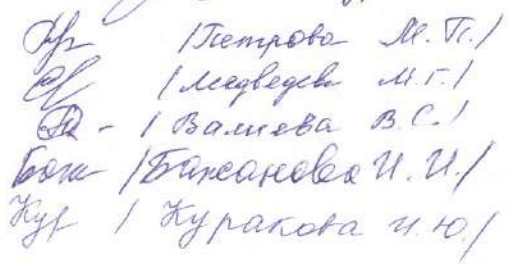 /Петрова М.П./
/Медведев М.Г./
/Валиева В.С./
Баж /Бажанова И.И./
Кур / Куракова И.Ю./